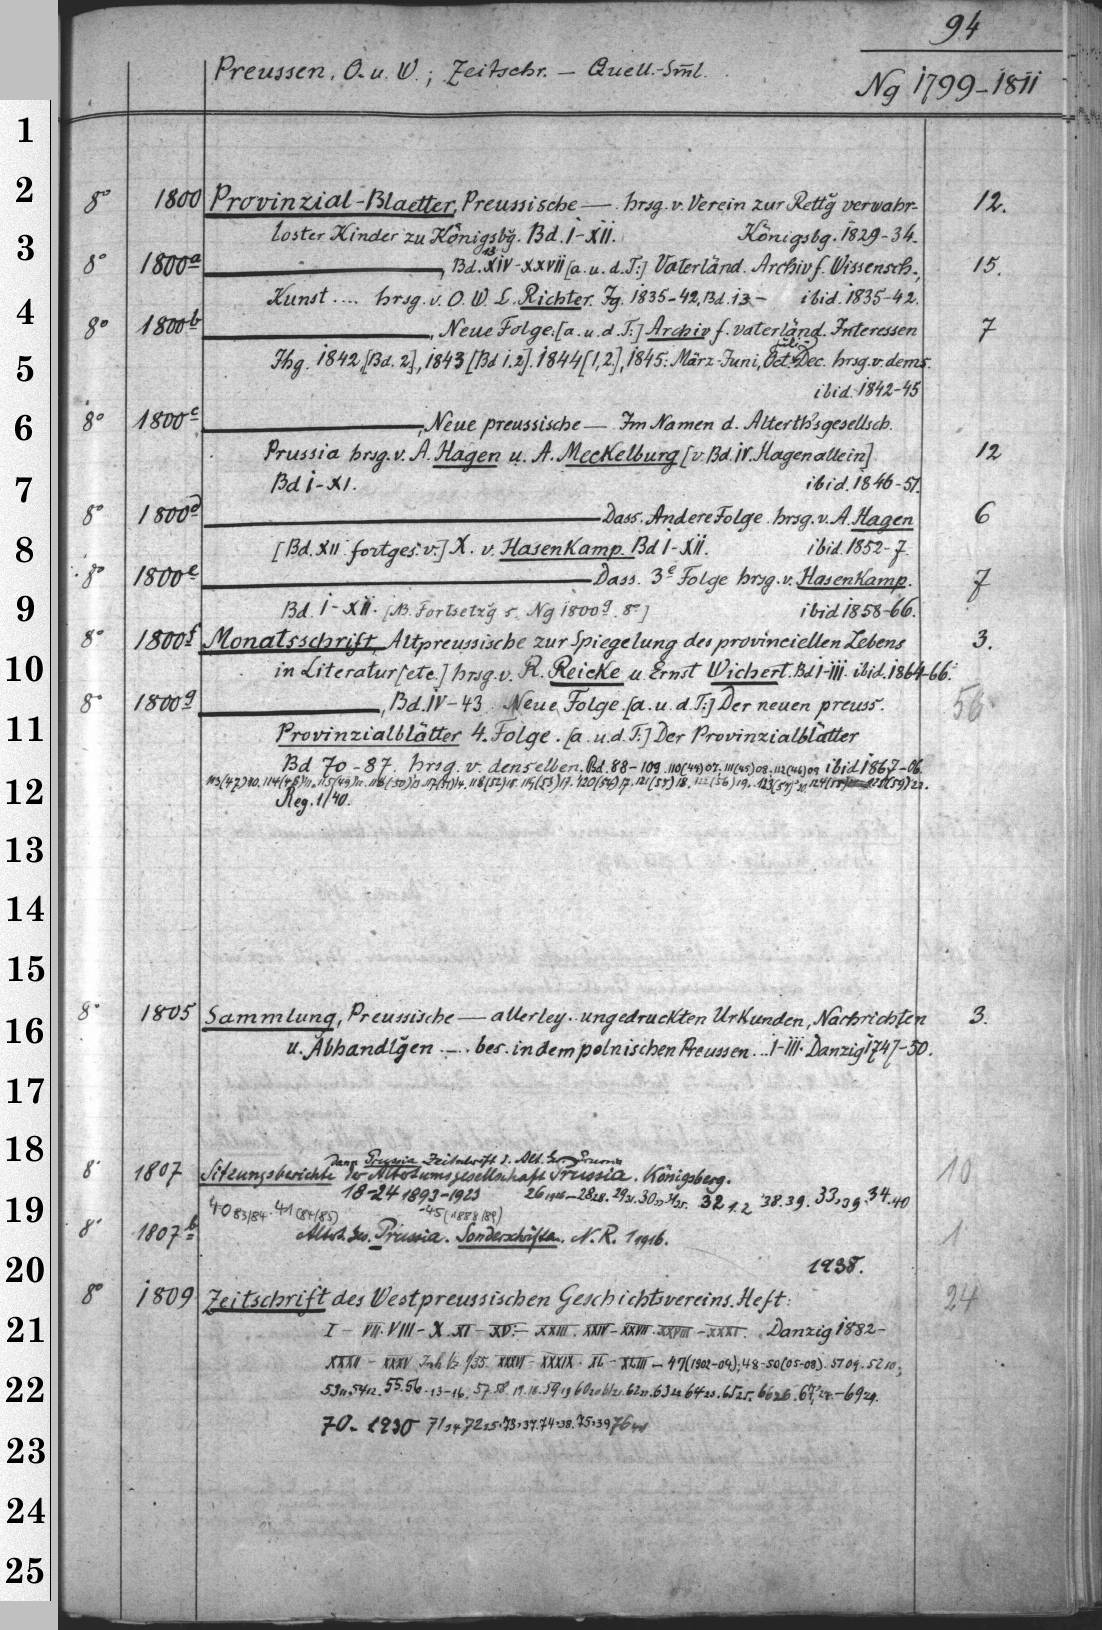 94
Preussen, O. u. W.; Zeitschr. — Quell.-Sm̅l.
Ng 1799–1811
8° 1800 Provinzial-Blaetter, Preussische — hrsg. v. Verein zur Rettg̅ verwahr- 12.
loster Kinder zu Königsbg̅. Bd. I–XII. Königsbg. 1829–34.
8° 1800a ———, Bd. XIV–XXVII [a. u. d. T:] Vaterländ. Archiv f. Wissensch., 15.
13
Kunst .... hrsg. v. O. W. L. Richter. Jg. 1835–42, Bd. 13.– ibid. 1835–42.
8° 1800b ———, Neue Folge. [a. u. d. T:] Archiv f. vaterländ. Interessen 7
Jhg. 1842, [Bd. 2], 1843 [Bd 1.2]. 1844 [1,2.], 1845: März-Juni, Oct.-Dec. hrsg. v. dems.
ibid. 1842–45
8° 1800c ———, Neue preussische — Im Namen d. Alterth'sgesellsch.
Prussia hrsg. v. A. Hagen u. A. Meckelburg [v. Bd. IV. Hagen allein] 12
Bd I–XI. ibid. 1846–51.
8° 1800d ——— Dass. Andere Folge. hrsg. v. A. Hagen 6
[Bd. XII fortges. v.] X. v. Hasenkamp. Bd I–XII. ibid. 1852–7.
8° 1800e ——— Dass. 3e Folge hrsg. v. Hasenkamp. 7
Bd. I–XII. [NB. Fortsetz'g s. Ng 1800g. 8°] ibid 1858–66.
8° 1800f Monatsschrift, Altpreussische zur Spiegelung des provinciellen Lebens 3.
in Literatur [etc.] hrsg. v. R. Reicke u. Ernst Wichert. Bd I–III. ibid. 1864–66.
8° 1800g ———, Bd. IV–43. Neue Folge. [a. u. d. T:] Der neuen preuss. 56
Provinzialblätter 4. Folge. [a. u. d. T:] Der Provinzialblätter
Bd 70–87. hrsg. v. denselben. Bd. 88–109. 110(44)07. 111(45)08. 112(46)09 ibid 1867–06.
113(47)10. 114(48)11. 115(49)12. 116(50)13. 117(51)14. 118(52)15. 119(53)17. 120(54)17. 121(55)18. 122(56)19. 123(57)20.
Reg. 1/40.
8° 1805 Sammlung, Preussische — allerley.. ungedruckten Urkunden, Nachrichten 3.
u. Abhandlg̅en .... bes. in dem polnischen Preussen ... I–III. Danzig 1747–50.
dann Prussia Zeitschrift d. Alt. Ges. Prussia
8° 1807 Sitzungsberichte der Altertumsgesellschaft Prussia. Königsberg. 10
18–24 1893–1923 26 1926–28 28. 29 31. 30 33 31 35. 32 1.2 38.39. 33, 39. 34. 40
40 83/84. 41 (84/85) –45 (1888/89)
8° 1807b Altert. Ges. Prussia. Sonderschriften. N. R. 1 1916. 1
1938.
8° 1809 Zeitschrift des Westpreussischen Geschichtsvereins. Heft: 24
I – VII. VIII – X. XI – XV. – XXIII. XXIV – XXVII. XXVIII – XXXI. Danzig 1882–
XXXII – XXXV Inh. bz. 1/35. XXXVI – XXXIX. XL – XLIII – 47 (1902–04); 48–50 (05–08). 51 09. 52 10;
53 11. 54 12. 55.56. 13–16. 57.58. 59 19 60 20 61 21. 62 22. 63 22 64 23. 65 25. 66 26. 67, –69 29.
70. 1930 71 34 72 35. 73, 37. 74. 38. 75, 39 76 41